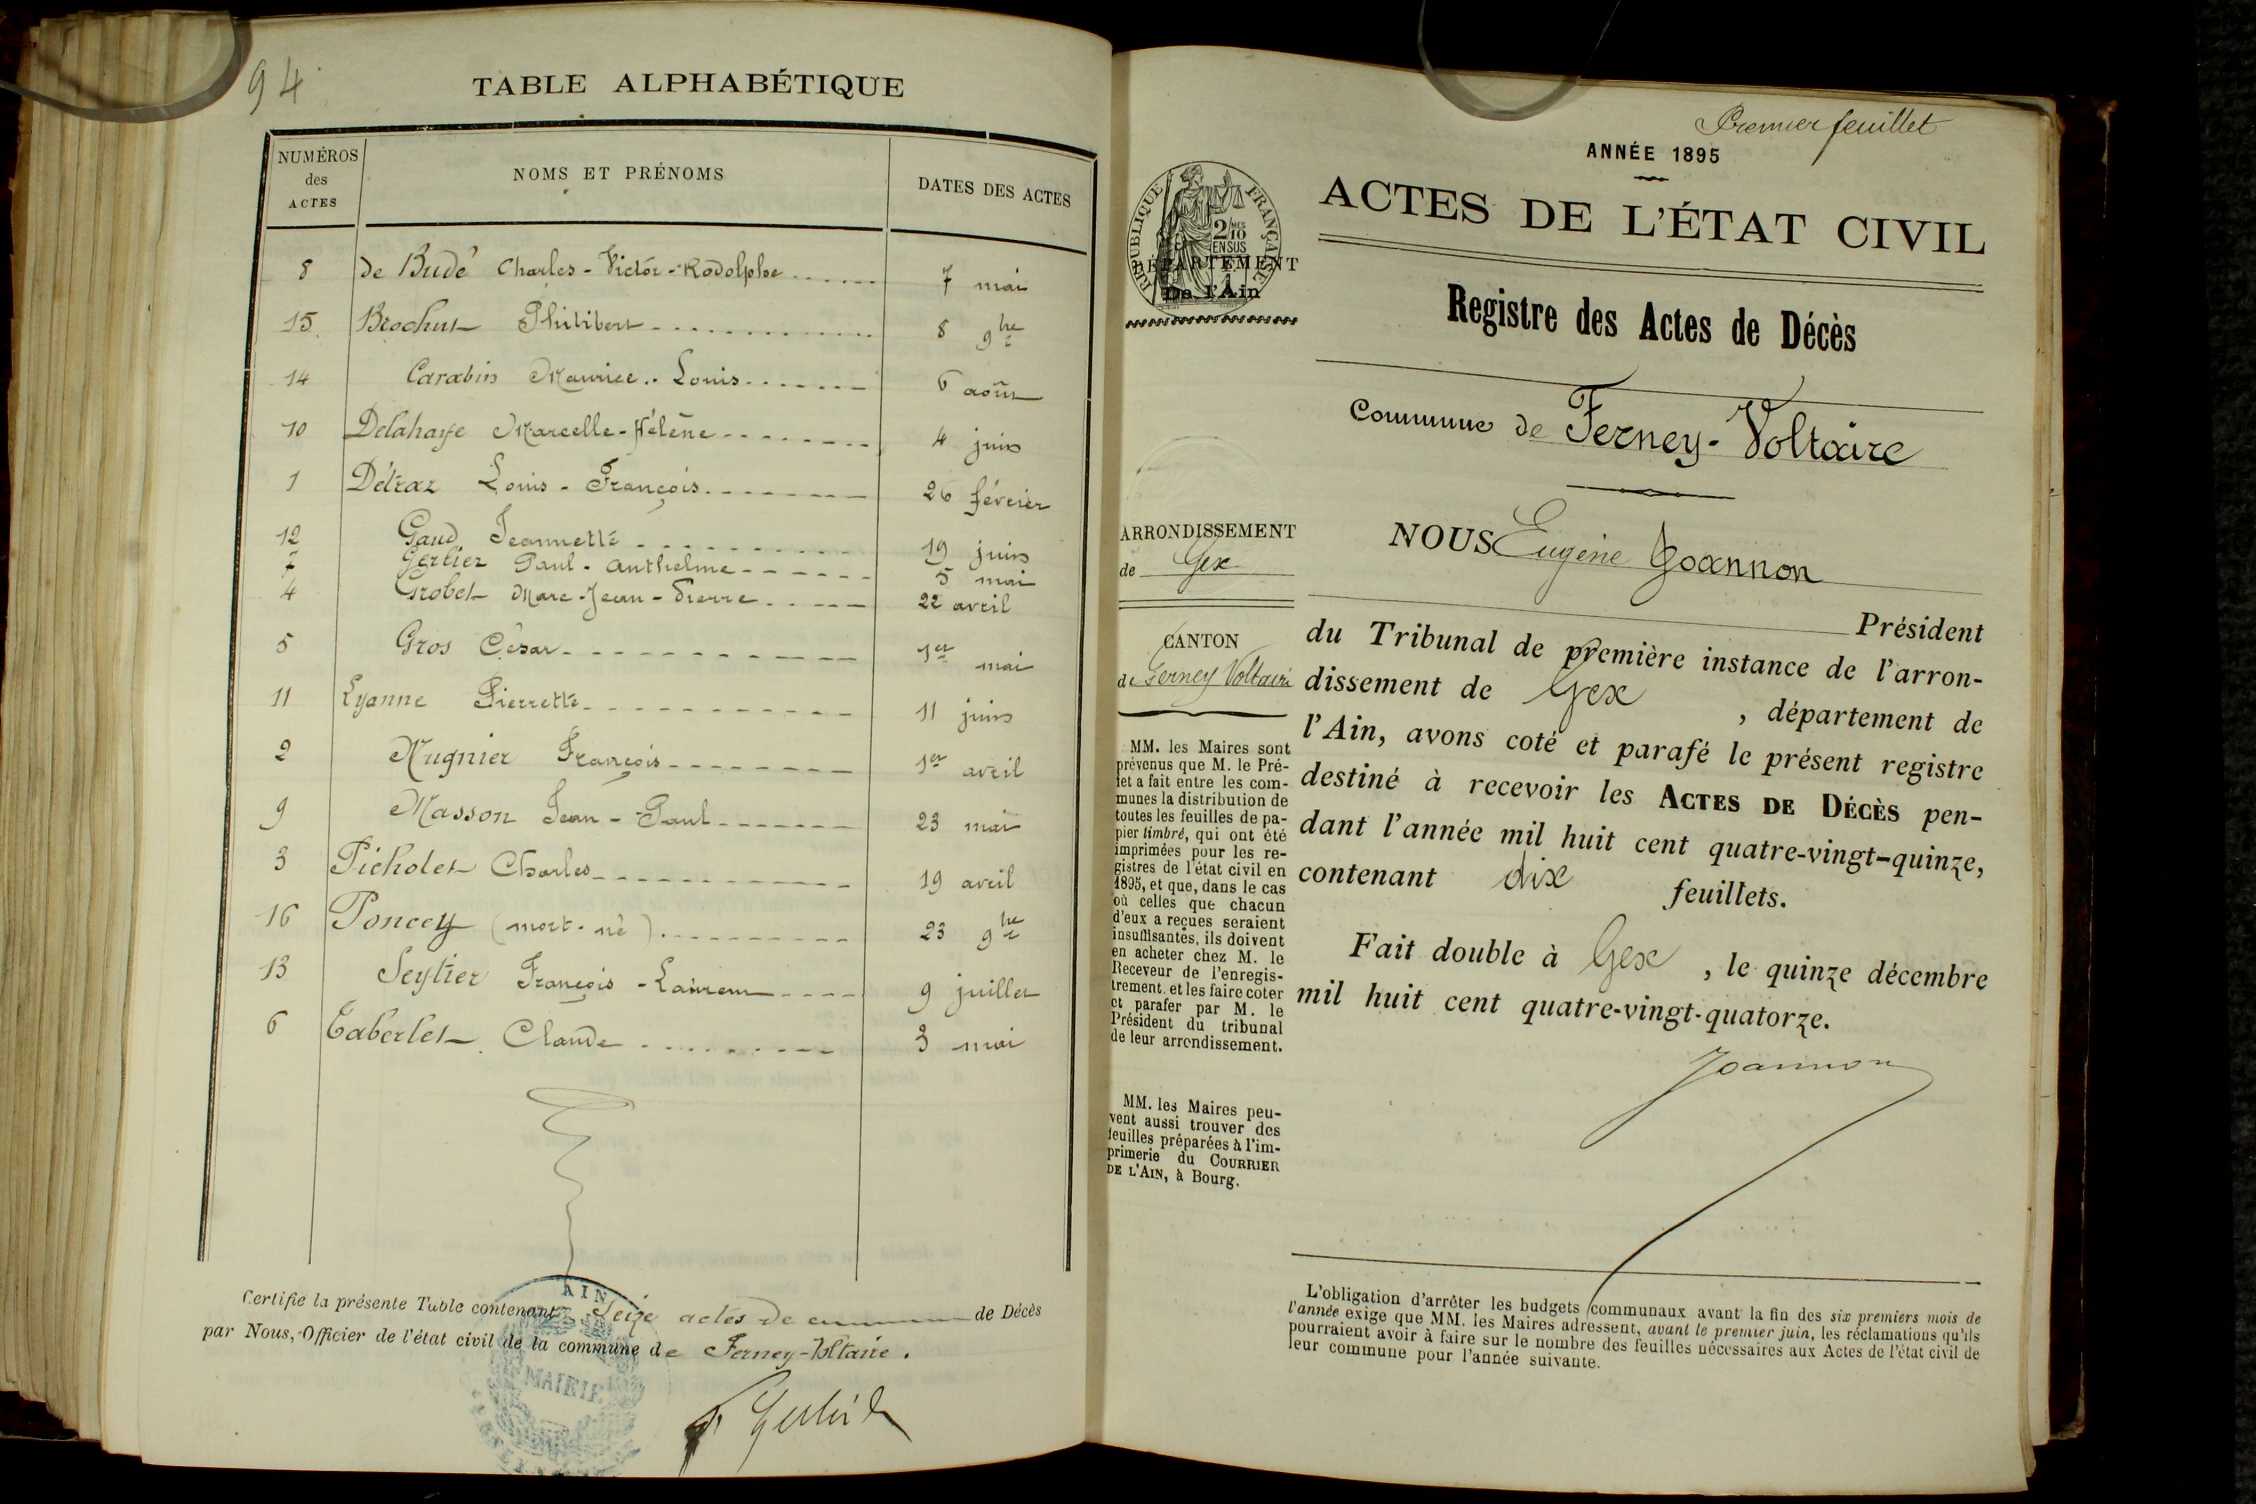 94
TABLE ALPHABÉTIQUE
NUMÉROS des ACTES
NOMS ET PRÉNOMS
DATES DES ACTES
8 de Budé Charles-Victor-Rodolphe 7 mai
15 Brochut Philibert 8 9bre
14 Carabin Maurice-Louis 6 août
10 Delahaye Marcelle-Hélène 4 juin
1 Détraz Louis-François 26 février
12 Gaud Jeannette 19 juin
7 Gerlier Paul-Anthelme 5 mai
4 Grobet Marc-Jean-Pierre 22 avril
5 Gros César 1er mai
11 Lyanne Pierrette 11 juin
2 Mugnier François 1er avril
9 Masson Jean-Paul 23 mai
3 Picholet Charles 19 avril
16 Poncey (mort-né) 23 9bre
13 Seytier François-Laurent 9 juillet
6 Taberlet Claude 3 mai
Certifie la présente Table contenant Seize actes de de Décès
par Nous, Officier de l'état civil de la commune de Ferney-Voltaire.
AIN
MAIRIE
Premier feuillet
ANNÉE 1895
ACTES DE L'ÉTAT CIVIL
RÉPUBLIQUE FRANÇAISE
2/10 EN SUS
DÉPARTEMENT
De l'Ain
Registre des Actes de Décès
Commune de Ferney-Voltaire
ARRONDISSEMENT
de Gex
CANTON
de Ferney Voltaire
MM. les Maires sont
prévenus que M. le Pré-
fet a fait entre les com-
munes la distribution de
toutes les feuilles de pa-
pier timbré, qui ont été
imprimées pour les re-
gistres de l'état civil en
1895, et que, dans le cas
où celles que chacun
d'eux a reçues seraient
insuffisantes, ils doivent
en acheter chez M. le
Receveur de l'enregis-
trement et les faire coter
et parafer par M. le
Président du tribunal
de leur arrondissement.
MM. les Maires peu-
vent aussi trouver des
feuilles préparées à l'im-
primerie du COURRIER
DE L'AIN, à Bourg.
NOUS Eugène Joannon
Président
du Tribunal de première instance de l'arron-
dissement de Gex , département de
l'Ain, avons coté et parafé le présent registre
destiné à recevoir les ACTES DE DÉCÈS pen-
dant l'année mil huit cent quatre-vingt-quinze,
contenant dix feuillets.
Fait double à Gex , le quinze décembre
mil huit cent quatre-vingt-quatorze.
Joannon
L'obligation d'arrêter les budgets communaux avant la fin des six premiers mois de
l'année exige que MM. les Maires adressent, avant le premier juin, les réclamations qu'ils
pourraient avoir à faire sur le nombre des feuilles nécessaires aux Actes de l'état civil de
leur commune pour l'année suivante.